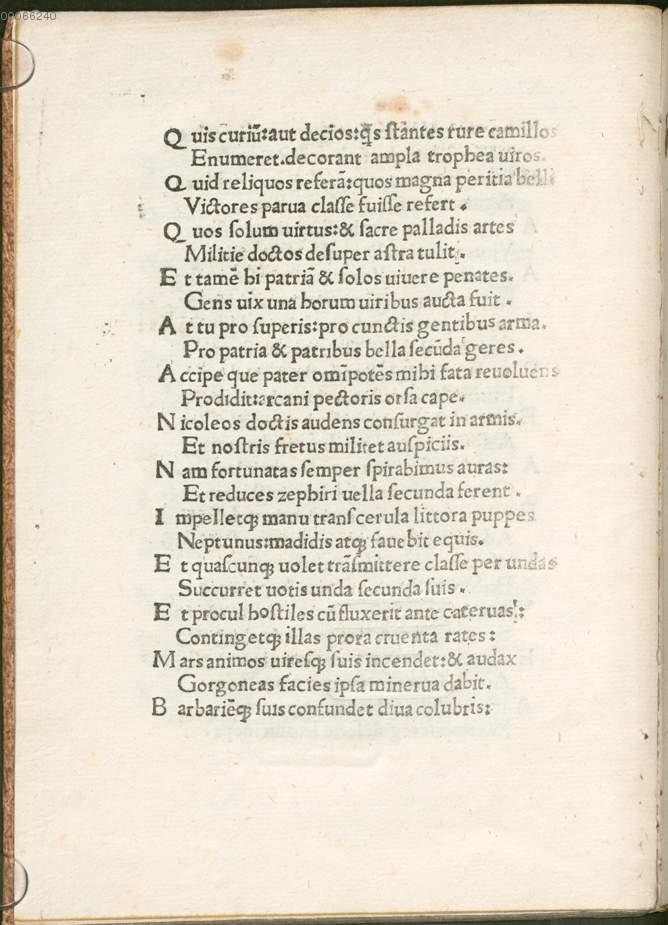 00066240
Q uis curiũ:aut decios:q̃s ſtantes rure camillos
Enumeret.decorant ampla trophea uiros.
Q uid reliquos referã:quos magna peritia belli
Victores parua claſſe fuiſſe refert .
Q uos ſolum uirtus:& ſacre palladis artes
Militie doctos deſuper aſtra tulit.
E t tamẽ hi patriã & ſolos uiuere penates.
Gens uix una horum uiribus aucta fuit .
A t tu pro ſuperis:pro cunctis gentibus arma.
Pro patria & patribus bella ſecũda geres .
A ccipe que pater omĩpotẽs mihi fata reuoluens
Prodidit:arcani pectoris orſa cape.
N icoleos doctis audens conſurgat in armis.
Et noſtris fretus militet auſpiciis.
N am fortunatas ſemper ſpirabimus auras:
Et reduces zephiri uella ſecunda ferent .
I mpelletqꝫ manu tranſcerula littora puppes
Neptunus:madidis atqꝫ fauebit equis.
E t quaſcunqꝫ uolet trãſmittere claſſe per undas
Succurret uotis unda ſecunda ſuis .
E t procul hoſtiles cũ fluxerit ante cateruas:
Contingetqꝫ illas prora cruenta rates:
M ars animos uireſqꝫ ſuis incendet:& audax
Gorgoneas facies ipſa minerua dabit.
B arbariẽqꝫ ſuis confundet diua colubris: